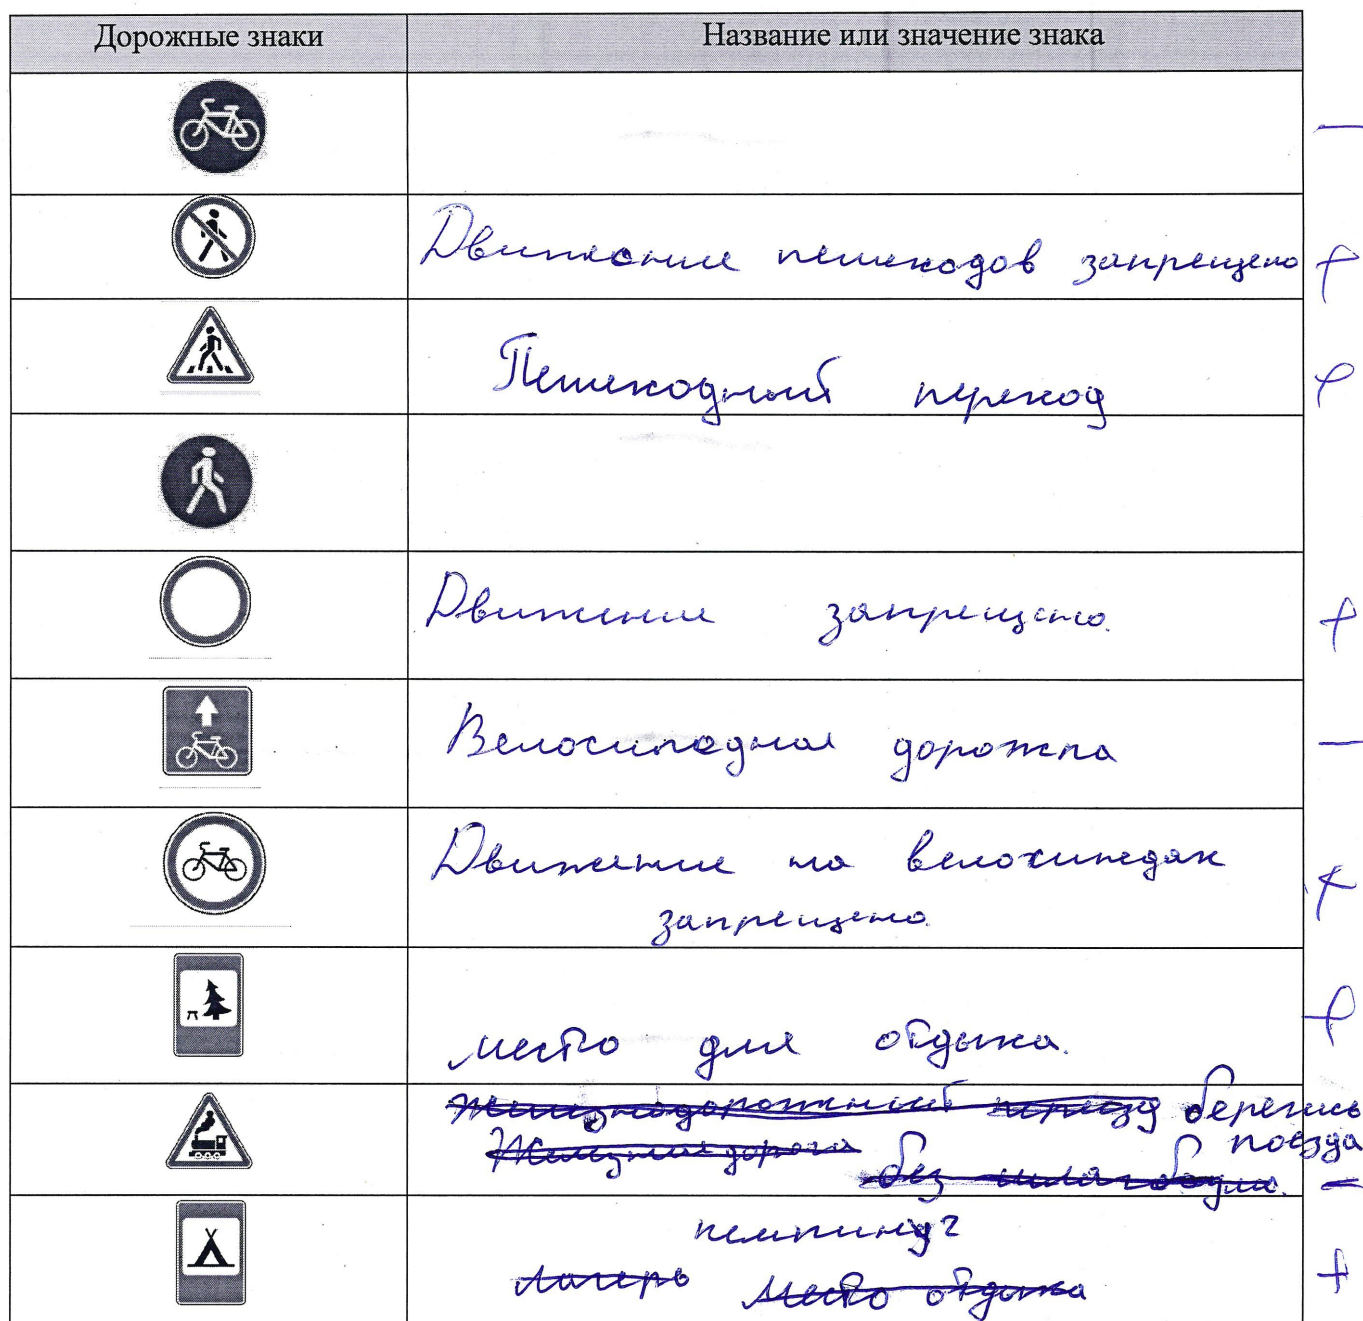 Дорожные знаки
Название или значение знака
—
Движение пешеходов запрещено +
Пешеходный переход +
Движение запрещено. +
Велосипедная дорожка —
Движение на велосипедах +
запрещено.
место для отдыха. +
Железнодорожный переезд берегись
Железная дорога поезда
без шлагбаума. —
кемпинг
лагерь Место отдыха +